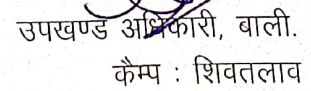 उपखण्ड अधिकारी, बाली.
कैम्प : शिवतलाव